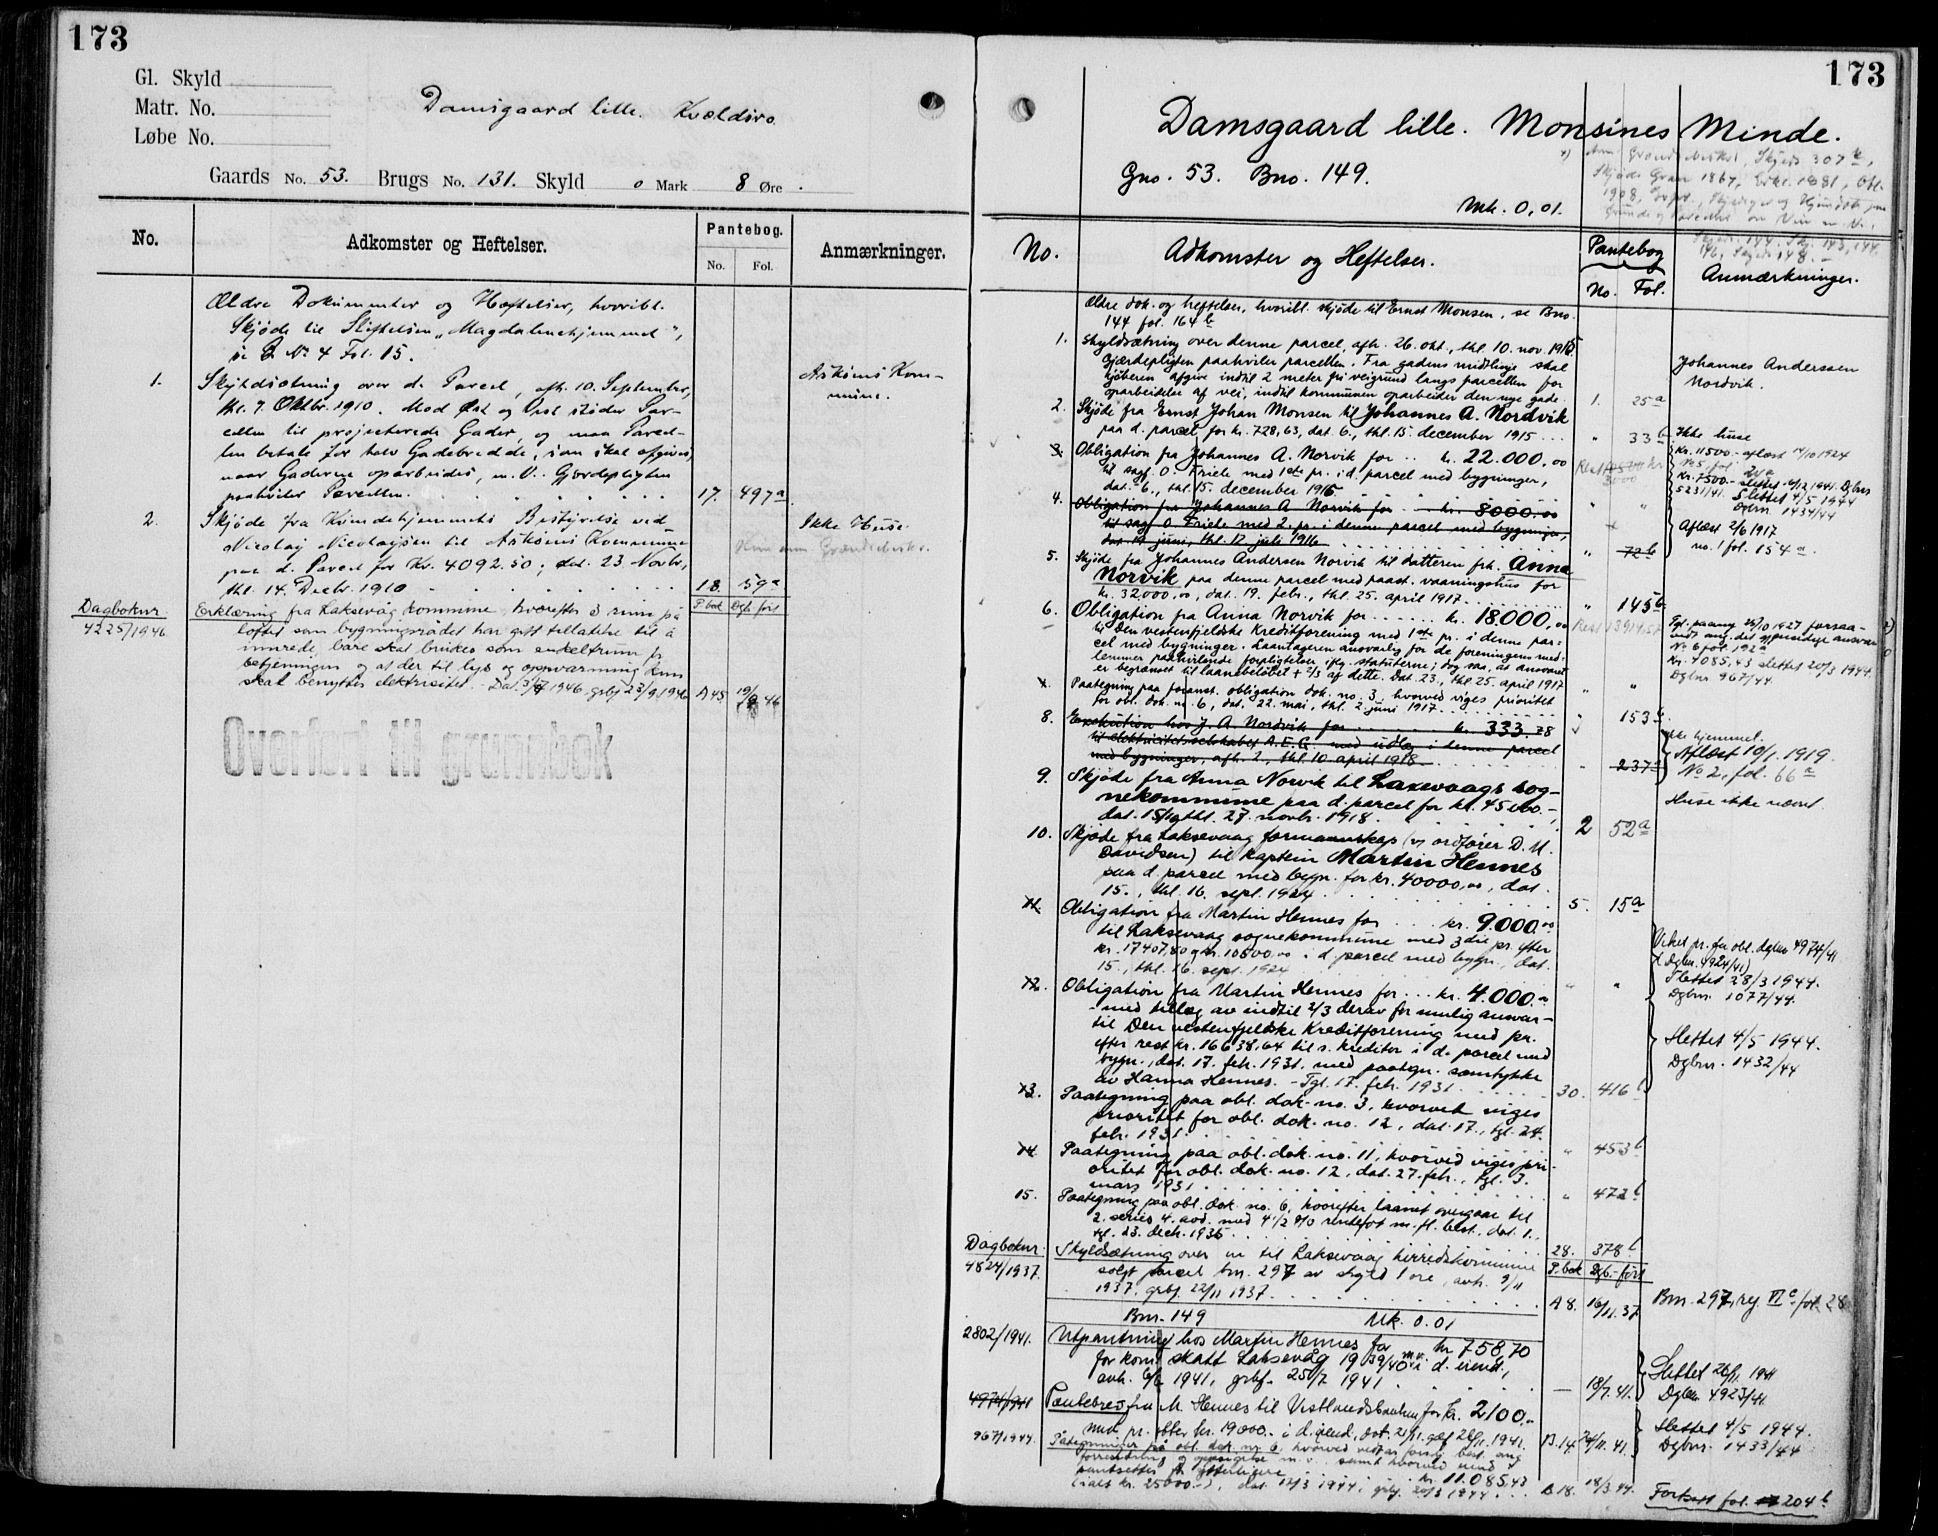 173
Gl. Skyld
Matr. No.
Løbe No.
Damsgaard lille. Kvældsro.
Gaards No. 53. Brugs No. 131. Skyld 0 Mark 8 Øre.
No.
Adkomster og Heftelser.
Pantebog.
No. Fol.
Anmærkninger.
Ældre Dokumenter og Hæftelser, hvoribl.
Skjøde til Stiftelsen „Magdalenehjemmet",
se B. No 4 Fol. 15.
1. Skyldsætning over d. Parcel, afh. 10. September,
thl. 7. Oktbr. 1910. Mod Øst og Vest støder Par-
cellen til projekterede Gader, og maa Parcel-
len betale for halv Gadebredde, som skal afgives,
naar Gaderne oparbeides, m. V. Gjerdepligten
paahviler Parcellen. 17. 497a
Askøens Kom-
mune.
2. Skjøde fra Kvindehjemmets Bestyrelse ved
Nicolay Nicolaysen til Askøens Kommune
paa d. Parcel for Kr. 4092.50; dat. 23 Novbr,
thl. 14. Decbr. 1910 18. 59a
Ikke Huse.
P. bok Dgb. ført
Dagboknr.
4225/1946
Erklæring fra Laksevåg kommune hvorefter 3 rum på
loftet som bygningsrådet har gitt tillatelse til å
innrede, bare skal brukes som enkeltrum for
betjeningen og at der til lys og oppvarmning kun
skal benyttes elektrisitet. Dat. 3/7 1946, grbf. 23/9 1946 A 45 19/9 46
Overført til grunnbok
173
Damsgaard lille. Monsines Minde.
Gno. 53. Bno. 149.
Mk. 0,01.
No.
Adkomster og Heftelser.
Pantebog
No. Fol.
Anmærkninger.
Ældre dok. og heftelser, hvoribl. skjøde til Ernst Monsen, se Bno.
144 fol. 164b
1. Skyldsætning over denne parcel, afh. 26. okt., thl. 10. nov. 1915.
Gjærdepligten paahviler parcellen. Fra gadens midtlinje skal
kjøberen afgive indtil 2 meter fri veigrund langs parcellen for
oparbeidelse af vei, indtil kommunen oparbeider den nye gade. 1. 25a
Johannes Anderssen
Nordvik.
2. Skjøde fra Ernst Johan Monsen til Johannes A. Nordvik
paa d. parcel for kr. 728,63, dat. 6., thl. 15. december 1915 " 33b
Ikke huse
3. Obligation fra Johannes A. Norvik for kr. 22.000,00
til sagf. O. Friele med 1ste pr. i d. parcel med bygninger,
dat. 6., thl. 15. december 1915
Kr. 11500.- aflæst 14/10 1924
No 5 fol. 24a
Kr. 7500.- slettet 4/12 1941. Dgbnr
5231/41. Slettet 4/5 1944
Dgbnr. 1434/44
4. Obligation fra Johannes A Norvik for kr. 8000.00
til sagf. O. Friele med 2. pr. i denne parcel med bygninger,
dat. 14 juni, thl. 12 juli 1916 " 72b
Aflæst 2/6 1917
no. 1 fol. 154a.
5. Skjøde fra Johannes Andersen Norvik til datteren frk. Anna
Norvik paa denne parcel med paast. vaaningshus for
kr. 32000,00, dat. 19. febr., thl. 25. april 1917 " 145b
6. Obligation fra Anna Norvik for kr. 18.000,00
til Den vestenfjeldske Kreditforening med 1ste pr. i denne par-
cel med bygninger. Laantageren ansvarlig for de foreningens med-
lemmer paahvilende forpligtelser iflg. statuterne; dog saa, at ansvaret
er begrænset til laanebeløbet + 2/3 af dette. Dat. 23., thl. 25. april 1917
No 6 fol. 192a
Kr. 4085,43 slettet 20/3 1944.
Dgbnr 967/44.
7. Paategning paa foranst. obligation dok. no. 3, hvorved viges prioritet
for obl. dok. nr. 6, dat. 22. mai, thl. 2. juni 1917 " 153b
8. Exekution hos J. A. Nordvik for kr. 333.78
til elektricitetsselskabet A.E.G. med udlæg i denne parcel
med bygninger, afh. 2., thl. 10. april 1918 " 237a
ikke hjemmel.
Aflæst 10/1. 1919.
No 2, fol. 66a
9. Skjøde fra Anna Norvik til Laxevaags sog-
nekommune paa d. parcel for kr. 45000.-,
dat. 15/11 thl. 27. novbr. 1918. 2 52a
Huse ikke nævnt.
10. Skjøde fra Laksevaag formannskap (v/ ordfører D. M.
Davidsen) til kaptein Martin Hennes
paa d. parcel med bygn. for kr. 40000,00, dat.
15., thl. 16. sept. 1924 5. 15a
11. Obligation fra Martin Hennes for kr. 9.000.00
til Laksevaag sognekommune med 3die pr. efter
kr. 17407,80 og kr. 10500.00 i d. parcel med bygn., dat.
15., thl. 16. sept. 1924 " "
Veket pr. for obl. dgbnr 4974/41
(Dgbnr. 4924/41)
Slettet 28/3 1944.
Dgbnr. 1077/44.
12. Obligation fra Martin Hennes for kr. 4.000.-
med tillæg av indtil 2/3 derav for mulig ansvar-
til Den vestenfjeldske Kreditforening med pr.
efter rest kr. 16638,64 til s. kreditor i d. parcel med
bygn., dat. 17. feb. 1931, med paategn. samtykke
av Hanna Hennes. - Tgl. 17. feb. 1931 30. 416b
Slettet 4/5 1944.
Dgbnr. 1432/44
13. Paategning paa obl. dok. no. 3, hvorved viges
prioritet for obl. dok. no. 12, dat. 17., tgl. 24.
feb. 1931 " 453b
14. Paategning paa obl. dok. no. 11, hvorved viges pri-
oritet for obl. dok. no. 12, dat. 27. feb., tgl. 3.
mars 1931 " 472b
15. Paategning paa obl. dok. no. 6, hvorefter laanet overgaar til
2. series 4. avd. med 4 1/2 % rentefot m. fl. best., dat. 1.,
tgl. 23. decb. 1935 28. 378b
Dagboknr. P. bok Dgb.-ført
4824/1937. Skyldsætning over en til Laksevaag herredskommune
solgt parcel bnr. 297 av skyld 1 øre, avh. 9/11
1937, grbf. 22/11 1937 A 8. 16/11. 37
Bnr. 297, reg. VIc fol. 28
Bnr. 149 Mk. 0.01
2802/1941. Utpantning hos Martin Hennes for kr 758,70
for kom. skatt Laksevåg 1939/40 m.v. i d. eiend.,
avh. 6/6 1941, grbf. 25/7 1941 — 18/7. 41.
Slettet 26/11 1941
Dgbnr 4923/41
4974/1941 Pantebrev fra M. Hennes til Vestlandsbanken for kr. 2100.-
med pr. etter kr. 19000.- i d. eiend., dat. 21/11. grbf 28/11. 1941. B. 14. 24/11. 41.
Slettet 4/5 1944.
Dgbnr. 1433/44
967/1944. Påtegninger på obl. dok. nr 6, hvorved vedtas forsk. best. ang.
forrentning og oppsigelse m. v. samt hvorved eiend
pantsettes for ytterligere kr. 11.085,43
(ialt kr. 25000.-), dat. 13/3 1944, grbf. 20/3 1944 B 18. 18/3. 44.
Fortsatt fol. 204b